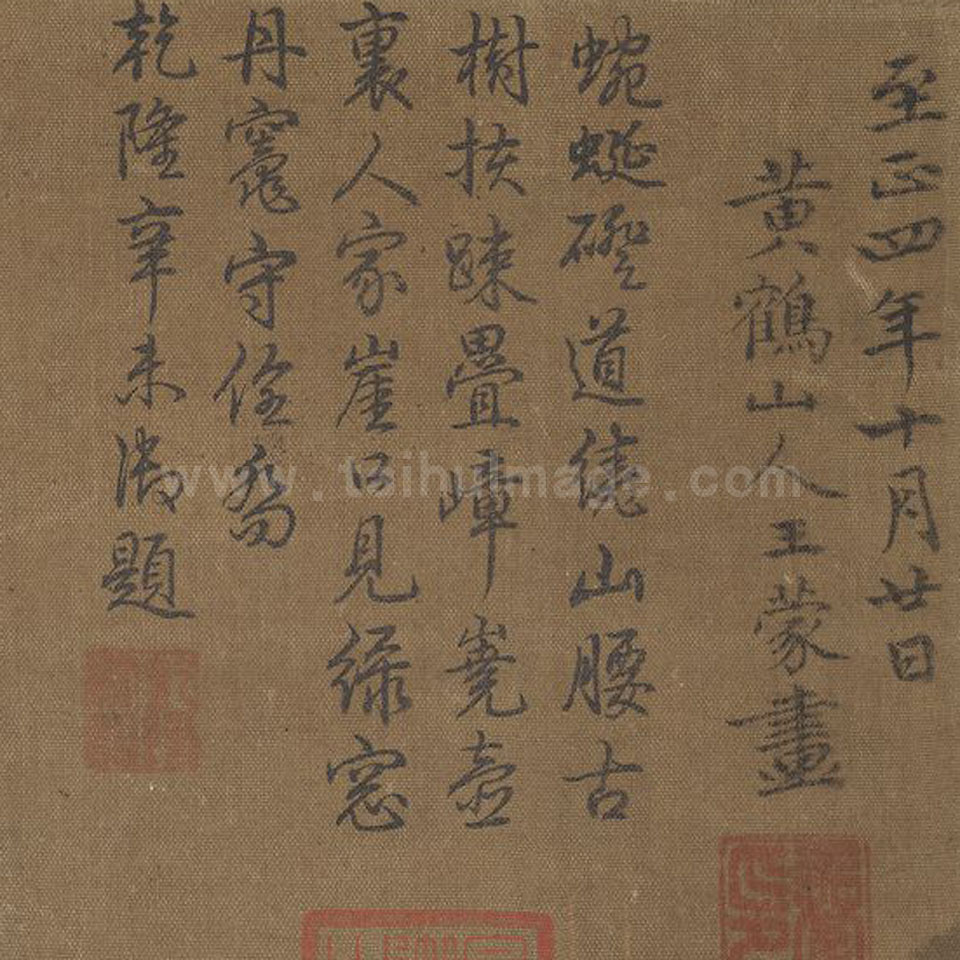 至正四年十月廿日
黃鶴山人王蒙畫
蜿蜒磴道繞山腰古
樹扶疎疊嶂嶤壺
裏人家崖口見綠窓
丹竈守佺喬
乾隆辛未御題
www.taihuimage.com